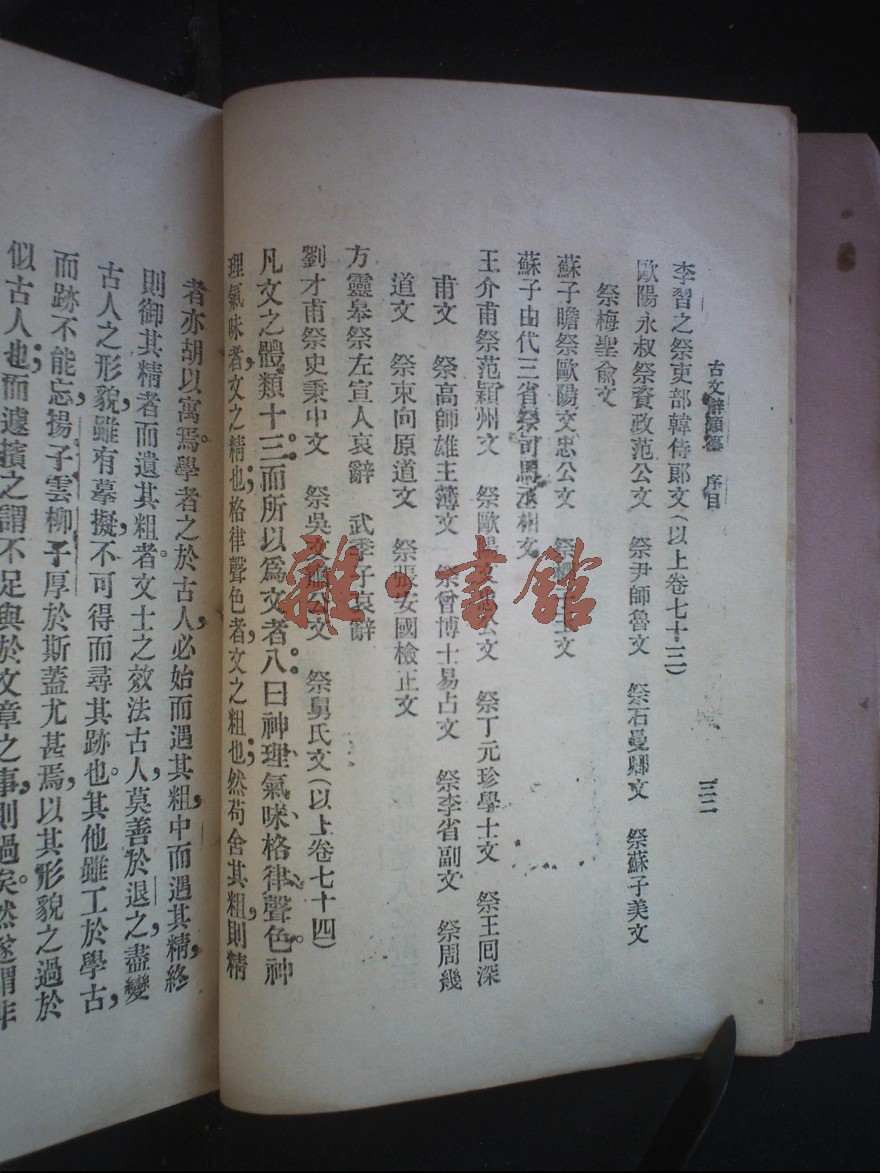 古文辭類纂 序目
三二
李習之祭吏部韓侍郎文(以上卷七十三)
歐陽永叔祭資政范公文 祭尹師魯文 祭石曼卿文 祭蘇子美文
祭梅聖俞文
蘇子瞻祭歐陽文忠公文 祭 文
蘇子由代三省祭司馬丞相文
王介甫祭范潁州文 祭歐陽文忠公文 祭丁元珍學士文 祭王回深
甫文 祭高師雄主簿文 祭曾博士易占文 祭李省副文 祭周幾
道文 祭束向原道文 祭張安國檢正文
方靈皋祭左宣人哀辭 武季子哀辭
劉才甫祭史秉中文 祭吳文肅公文 祭舅氏文(以上卷七十四)
凡文之體類十三。而所以爲文者八。曰神、理、氣、味、格、律、聲、色。神
理氣味者，文之精也；格律聲色者，文之粗也。然苟舍其粗，則精
者亦胡以寓焉。學者之於古人，必始而遇其粗，中而遇其精，終
則御其精者而遺其粗者。文士之效法古人，莫善於退之，盡變
古人之形貌，雖有摹擬，不可得而尋其跡也。其他雖工於學古，
而跡不能忘，揚子雲柳子厚於斯蓋尤甚焉，以其形貌之過於
似古人也；而遽擯之，謂不足與於文章之事，則過矣。然遂謂非
雜·書館